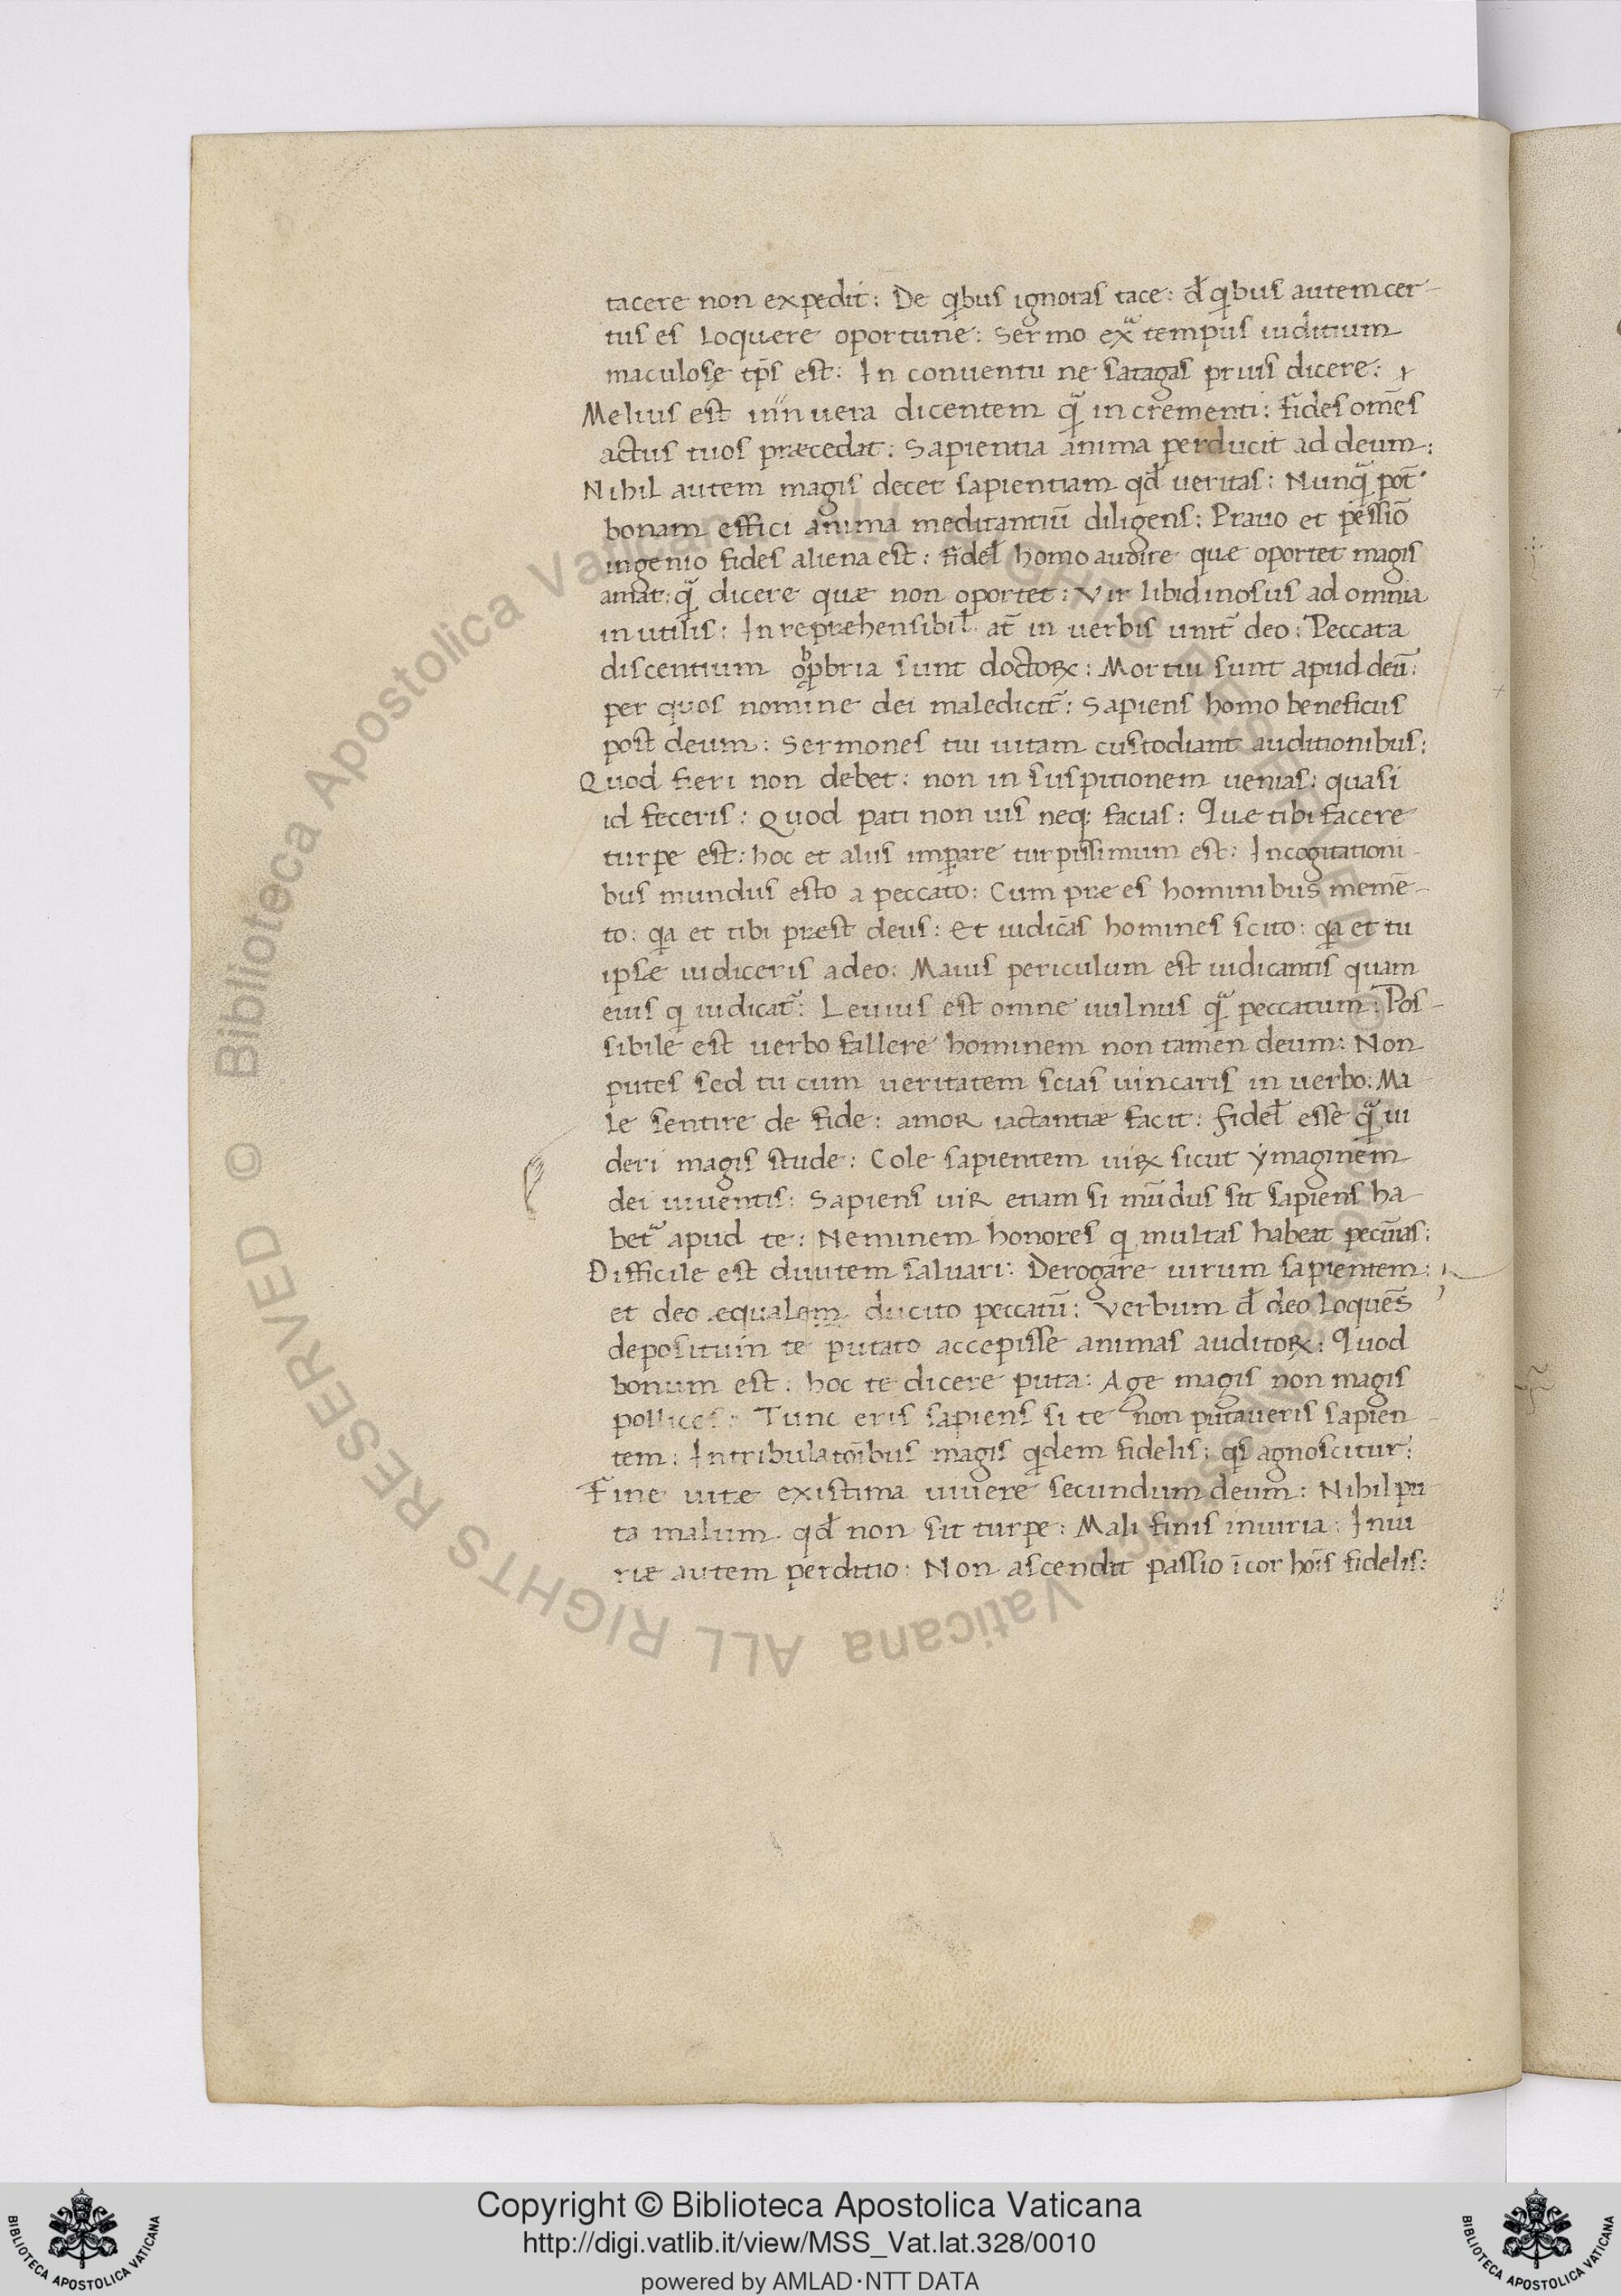 tacere non expedit: De qibus ignoras tace: đ qibus autem cer-
tus es loquere oportune: Sermo exᵃ tempus iuditium
maculosę tp̄s est: In conuentu ne satagas prius dicere:
Melius est uera dicentem qᷓ in crementi: fides om̄es
actus tuos præcedat: Sapientia anima perducit ad deum:
Nihil autem magis decet sapientiam qđ ueritas: Nunqᷓ pot̄
bonam effici anima meditantiū diligens: Prauo et pessīo
ingenio fides aliena est: fidel̄ homo audire que oportet magis
amat: qᷓ dicere quæ non oportet: Vir libidinosus ad omnia
inutilis: Inreprehensibil̄ at̄ in uerbis unit̄ deo: Peccata
discentium opꝓbria sunt doctoꝝ: Mortui sunt apud deū:
per quos nomine dei maledicit̄: Sapiens homo beneficus
post deum: Sermones tui uitam custodiant auditionibus:
Quod fieri non debet: non in suspitionem uenias: quasi
id feceris: Quod pati non uis neq; facias: Quæ tibi facere
turpe est: hoc et aliis imꝑare turpissimum est: Incogitationi-
bus mundus esto a peccato: Cum præ es hominibus memē-
to: qa et tibi præst deus: Et iudicās homines scito: qa et tu
ipsæ iudiceris a deo: Maius periculum est iudicantis quam
eius q iudicat᷑: Leuius est omne uulnus qᷓ peccatum: Pos-
sibile est uerbo fallere hominem non tamen deum: Non
putes sed tu cum ueritatem scias uincaris in uerbo: Ma
le sentire de fide: amor iactantiæ facit: fidel̄ esse qᷓ ui
deri magis stude: Cole sapientem uiꝝ sicut ymaginem
dei uiuentis: Sapiens uir etiam si mūdus sit sapiens ha
bet᷑ apud te: Neminem honores q multas habeat pecūias:
Difficile est diuitem saluari: Derogare uirum sapientem:
et deo æqualem ducito peccatū: Verbum đ deo loquēs
depositum te p̄utato accepisse animas auditoꝝ: Quod
bonum est: hoc te dicere puta: Age magis non magis
pollices: Tunc eris sapiens si te non putaueris sapien-
tem: Intribulatōibus magis qidem fidelis: qs agnoscitur:
Fine uitæ existima uiuere secundum deum: Nihil pu
ta malum qđ non sit turpe: Mali finis iniuria: Iniu
riæ autem perditio: Non ascendit passio ī cor hoīs fidelis:
© Biblioteca Apostolica Vaticana ALL RIGHTS RESERVED
Copyright © Biblioteca Apostolica Vaticana
http://digi.vatlib.it/view/MSS_Vat.lat.328/0010
powered by AMLAD·NTT DATA
BIBLIOTECA APOSTOLICA VATICANA
BIBLIOTECA APOSTOLICA VATICANA